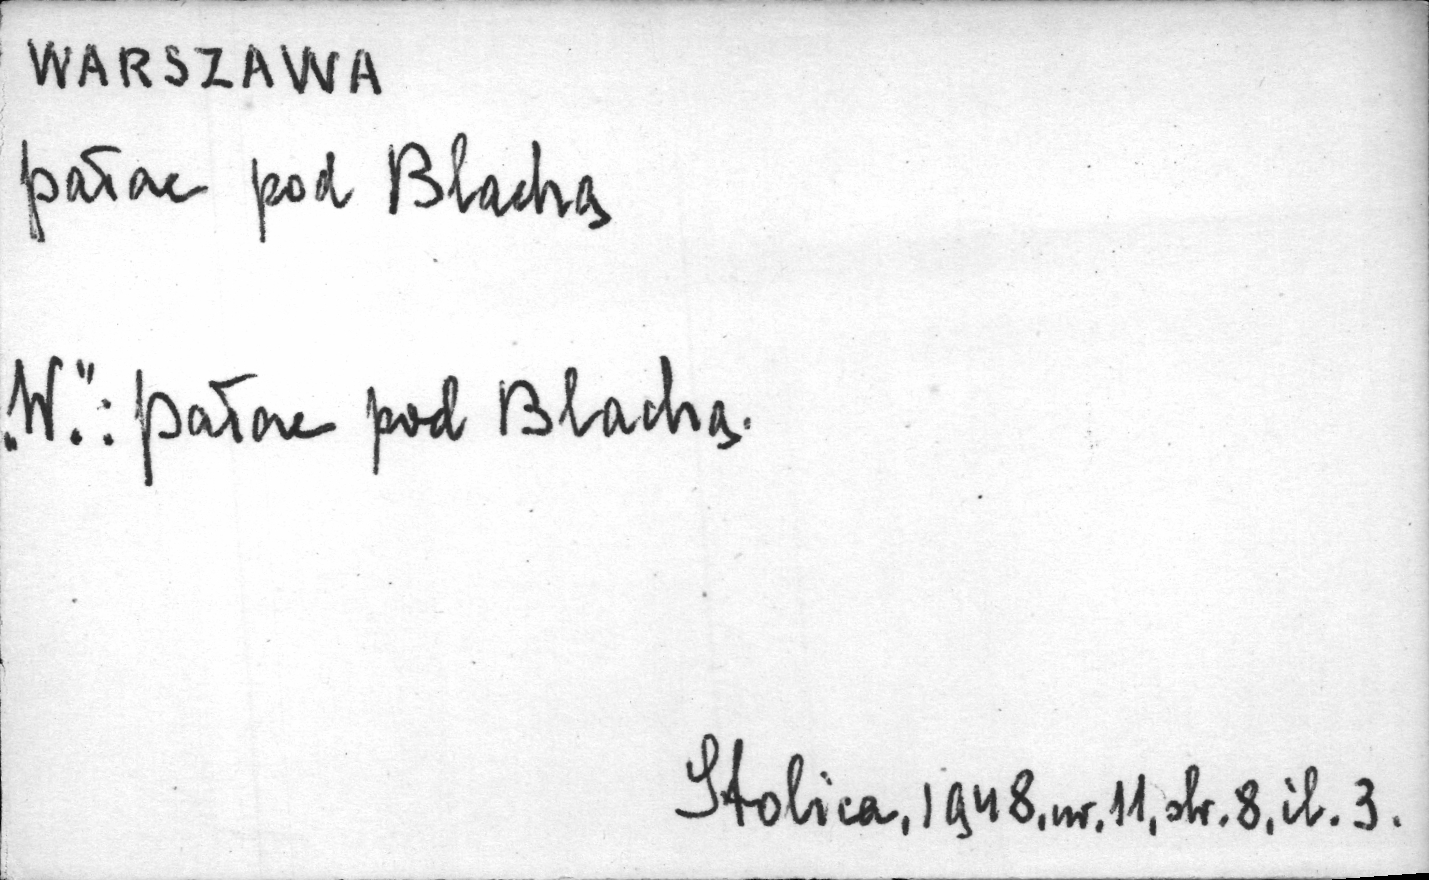 WARSZAWA
pałac pod Blachą
„W.": pałac pod Blachą.
Stolica, 1948, nr. 11, str. 8, il. 3.